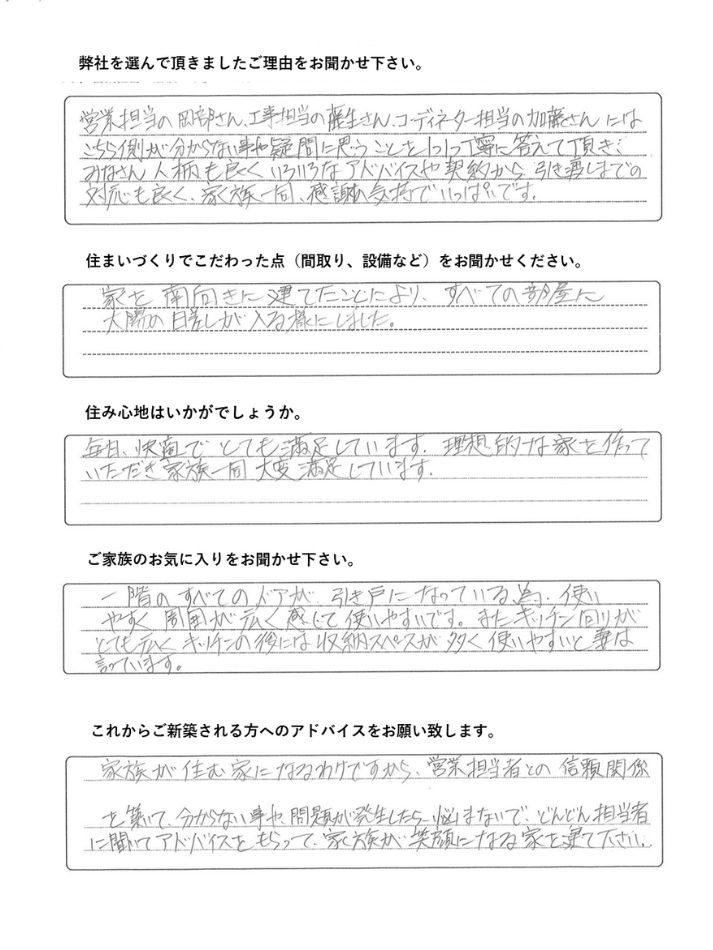 弊社を選んで頂きましたご理由をお聞かせ下さい。
営業担当の岡部さん、工事担当の藤生さん、コーディネーター担当の加藤さんには
こちら側が分からない事や疑問に思うことを1つ1つ丁寧に答えて頂き、
みなさん人柄も良くいろいろなアドバイスや契約から引き渡しまでの
対応も良く、家族一同、感謝の気持でいっぱいです。
住まいづくりでこだわった点（間取り、設備など）をお聞かせください。
家を南向きに建てたことにより、すべての部屋に
太陽の日差しが入る様にしました。
住み心地はいかがでしょうか。
毎日、快適でとても満足しています。理想的な家を作って
いただき家族一同大変満足しています。
ご家族のお気に入りをお聞かせ下さい。
一階のすべてのドアが、引き戸になっている為、使い
やすく周囲が広く感じて使いやすいです。またキッチン回りが
とても広くキッチンの後には収納スペースが多く使いやすいと妻は
言っています。
これからご新築される方へのアドバイスをお願い致します。
家族が住む家になるわけですから、営業担当者との信頼関係
を築いて、分からない事や、問題が発生したら悩まないで、どんどん担当者
に聞いてアドバイスをもらって、家族が笑顔になる家を建て下さい。